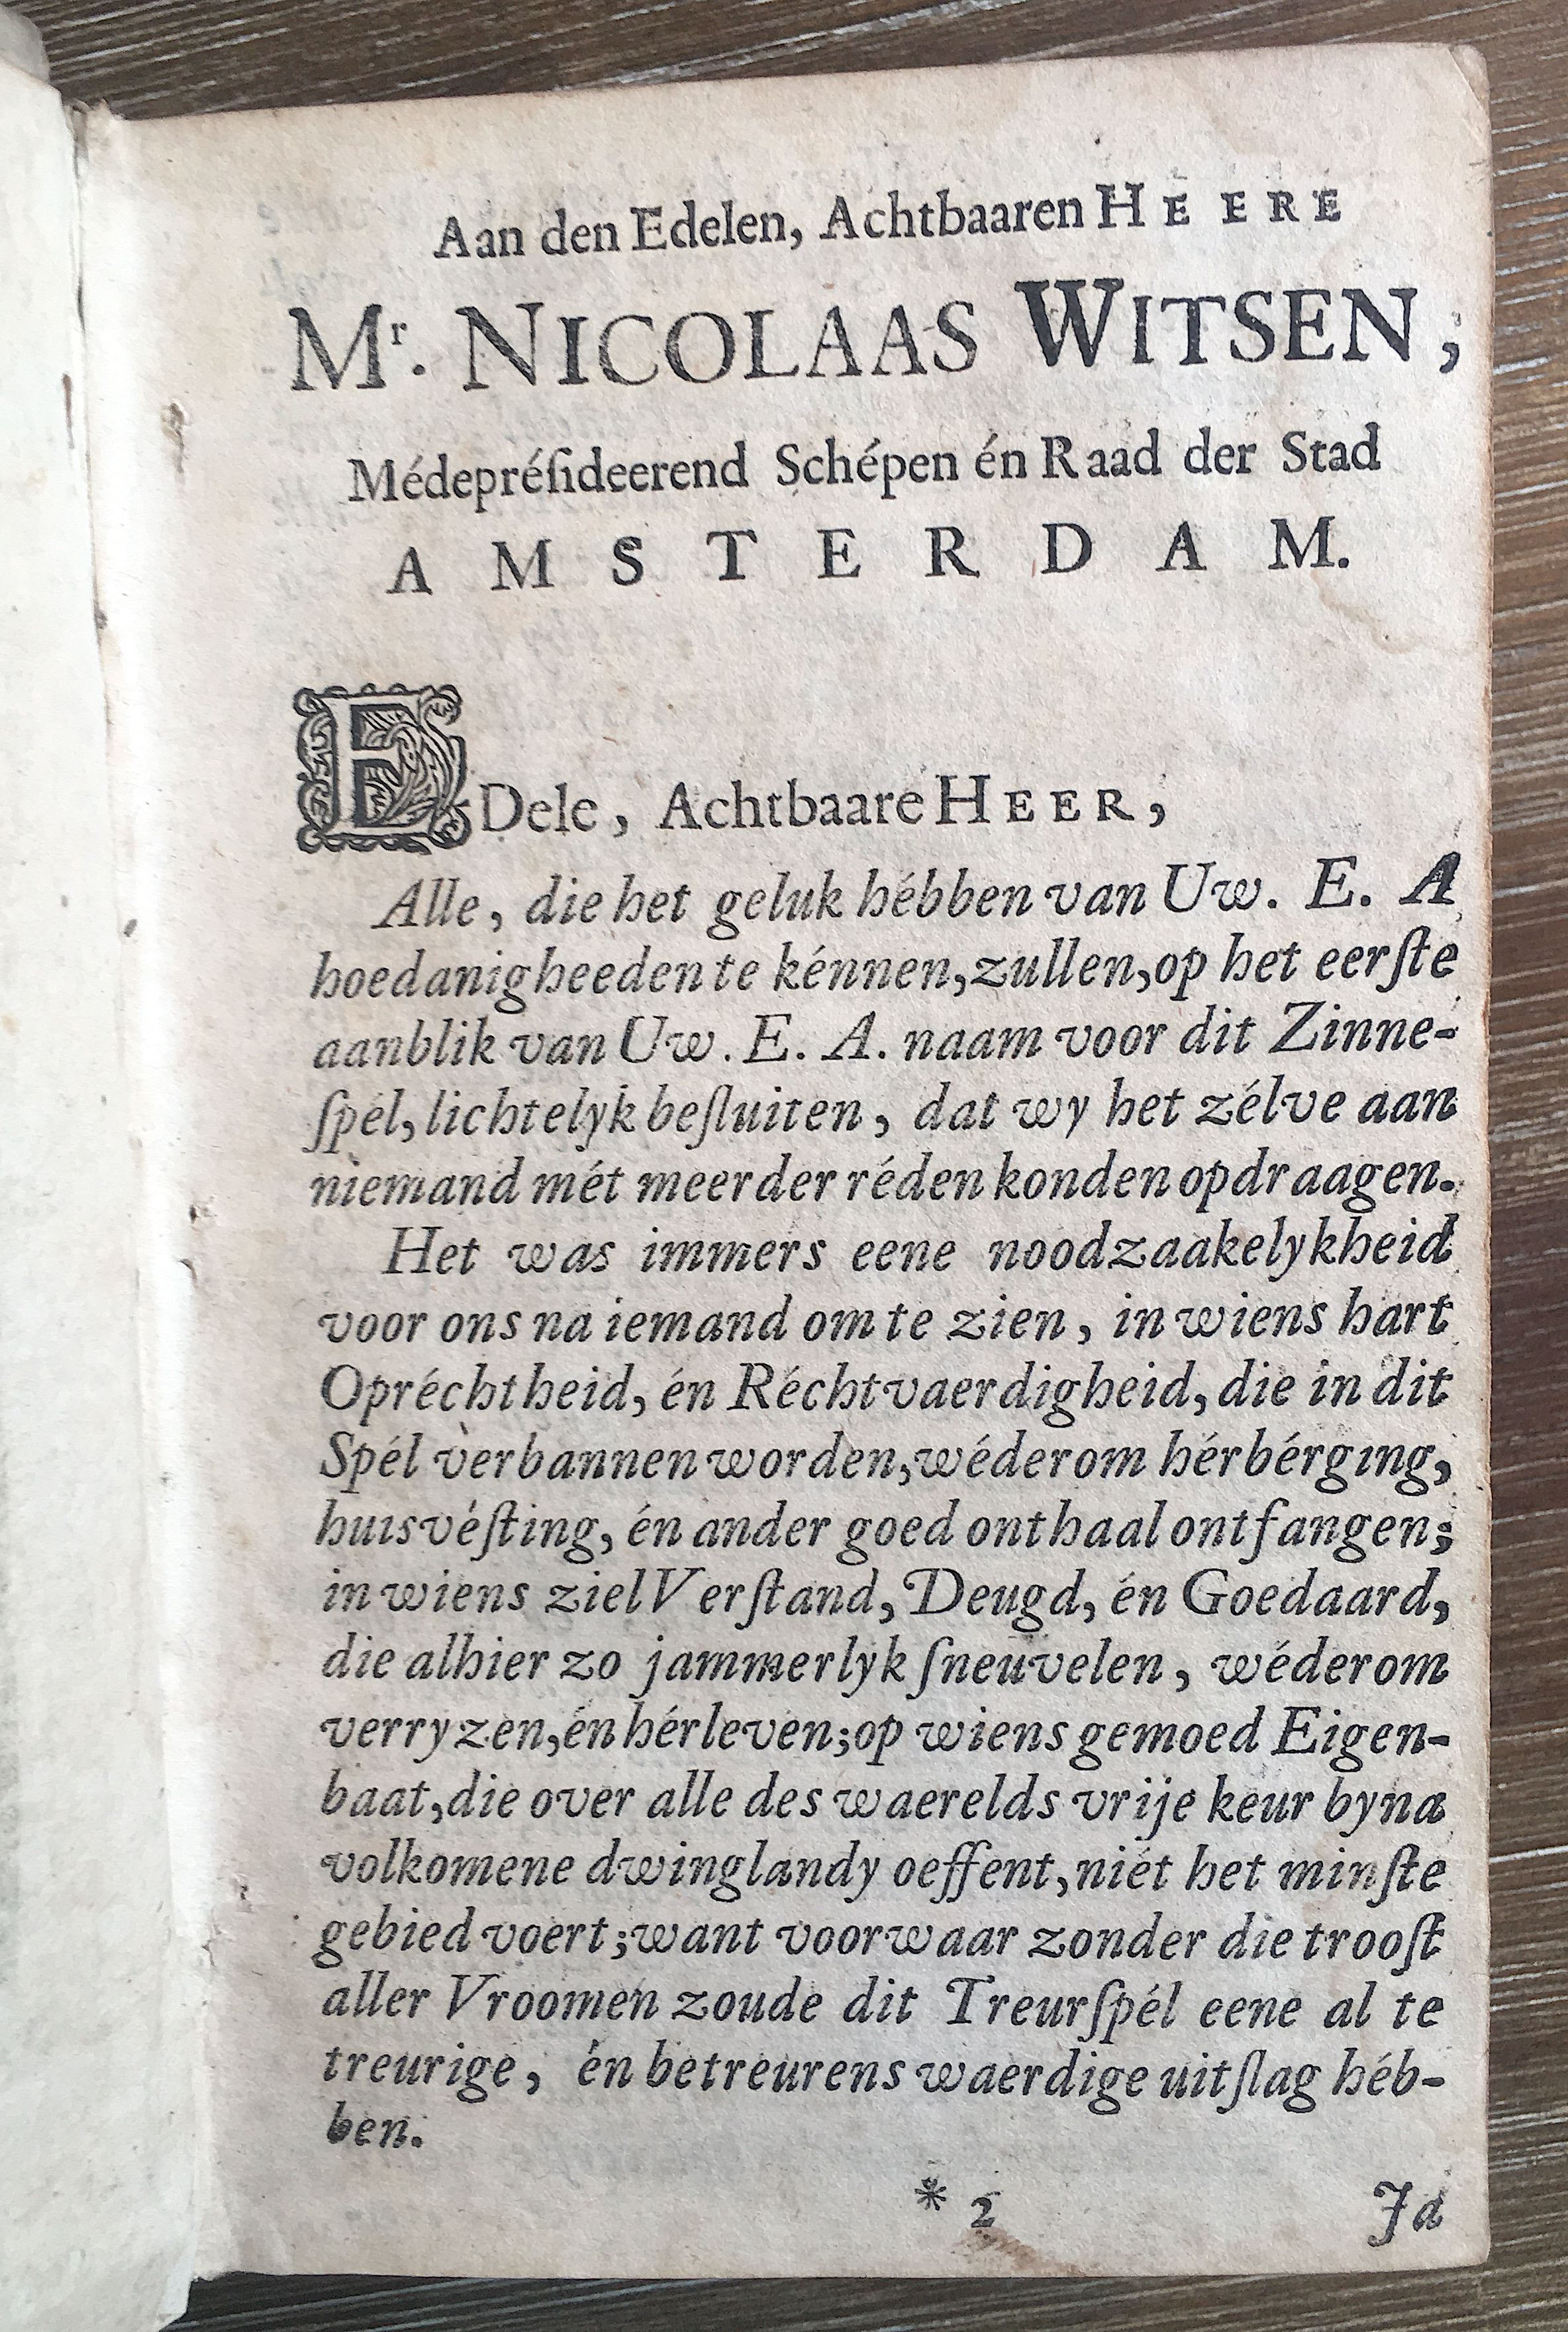 Aan den Edelen, Achtbaaren HEERE
Mr. NICOLAAS WITSEN,
Médepréſideerend Schépen én Raad der Stad
AMSTERDAM.
EDele, Achtbaare HEER,
Alle, die het geluk hébben van Uw. E. A
hoedanigheeden te kénnen, zullen, op het eerſte
aanblik van Uw. E. A. naam voor dit Zinne-
ſpél, lichtelyk beſluiten, dat wy het zélve aan
niemand mét meerder réden konden opdraagen.
Het was immers eene noodzaakelykheid
voor ons na iemand om te zien, in wiens hart
Opréchtheid, én Réchtvaerdigheid, die in dit
Spél verbannen worden, wéderom hérbérging,
huisvéſting, én ander goed onthaal ontfangen;
in wiens ziel Verſtand, Deugd, én Goedaard,
die alhier zo jammerlyk ſneuvelen, wéderom
verryzen, én hérleven; op wiens gemoed Eigen-
baat, die over alle des waerelds vrije keur byna
volkomene dwinglandy oeffent, niét het minſte
gebied voert; want voorwaar zonder die trooſt
aller Vroomen zoude dit Treurſpél eene al te
treurige, én betreurenswaerdige uitſlag héb-
ben.
* 2 Ja